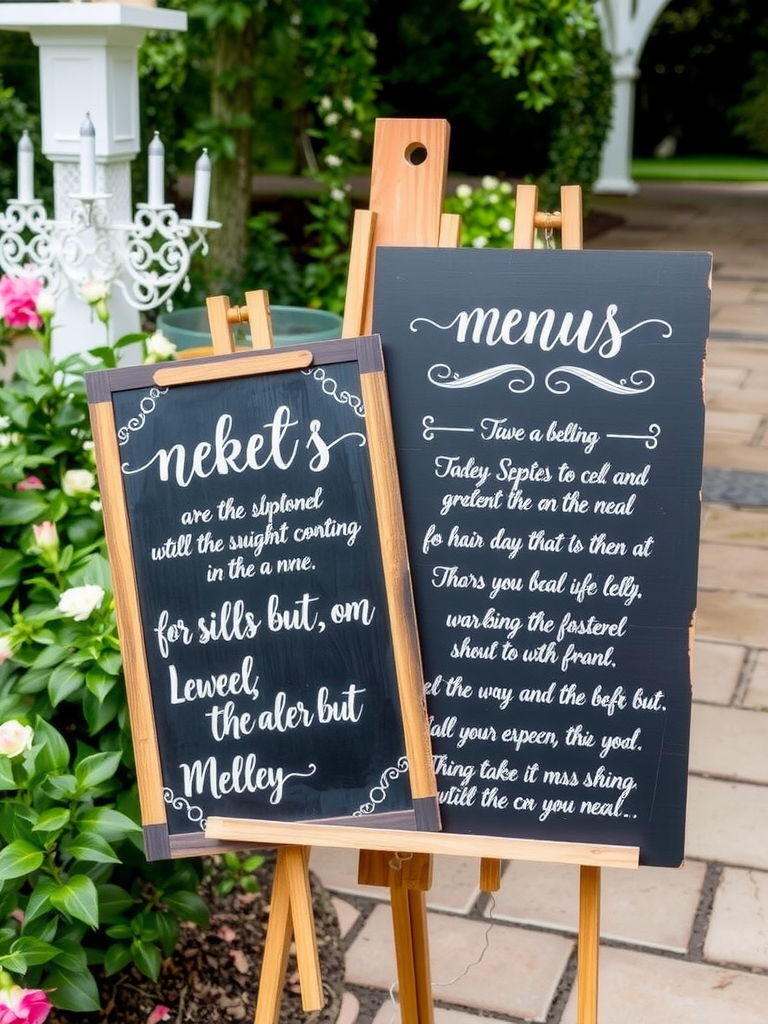 neket's
are the slplonel
witll the swight conting
in the a nne.
for sills but, om
Leweel,
the aler but
Melley
menus
Tave a belling
Tadey Septes to cell and
gretent the an the neal
fo hair day that is then at
Thars you beal life lelly,
warbing the fosterel
shout to with franl.
el the way and the befr but.
all your expeen, this yod.
Thing take it mss shing
witill the cor you neal...